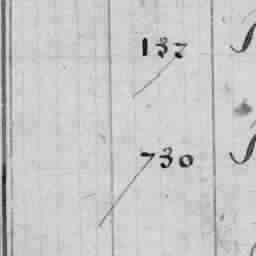 137
730